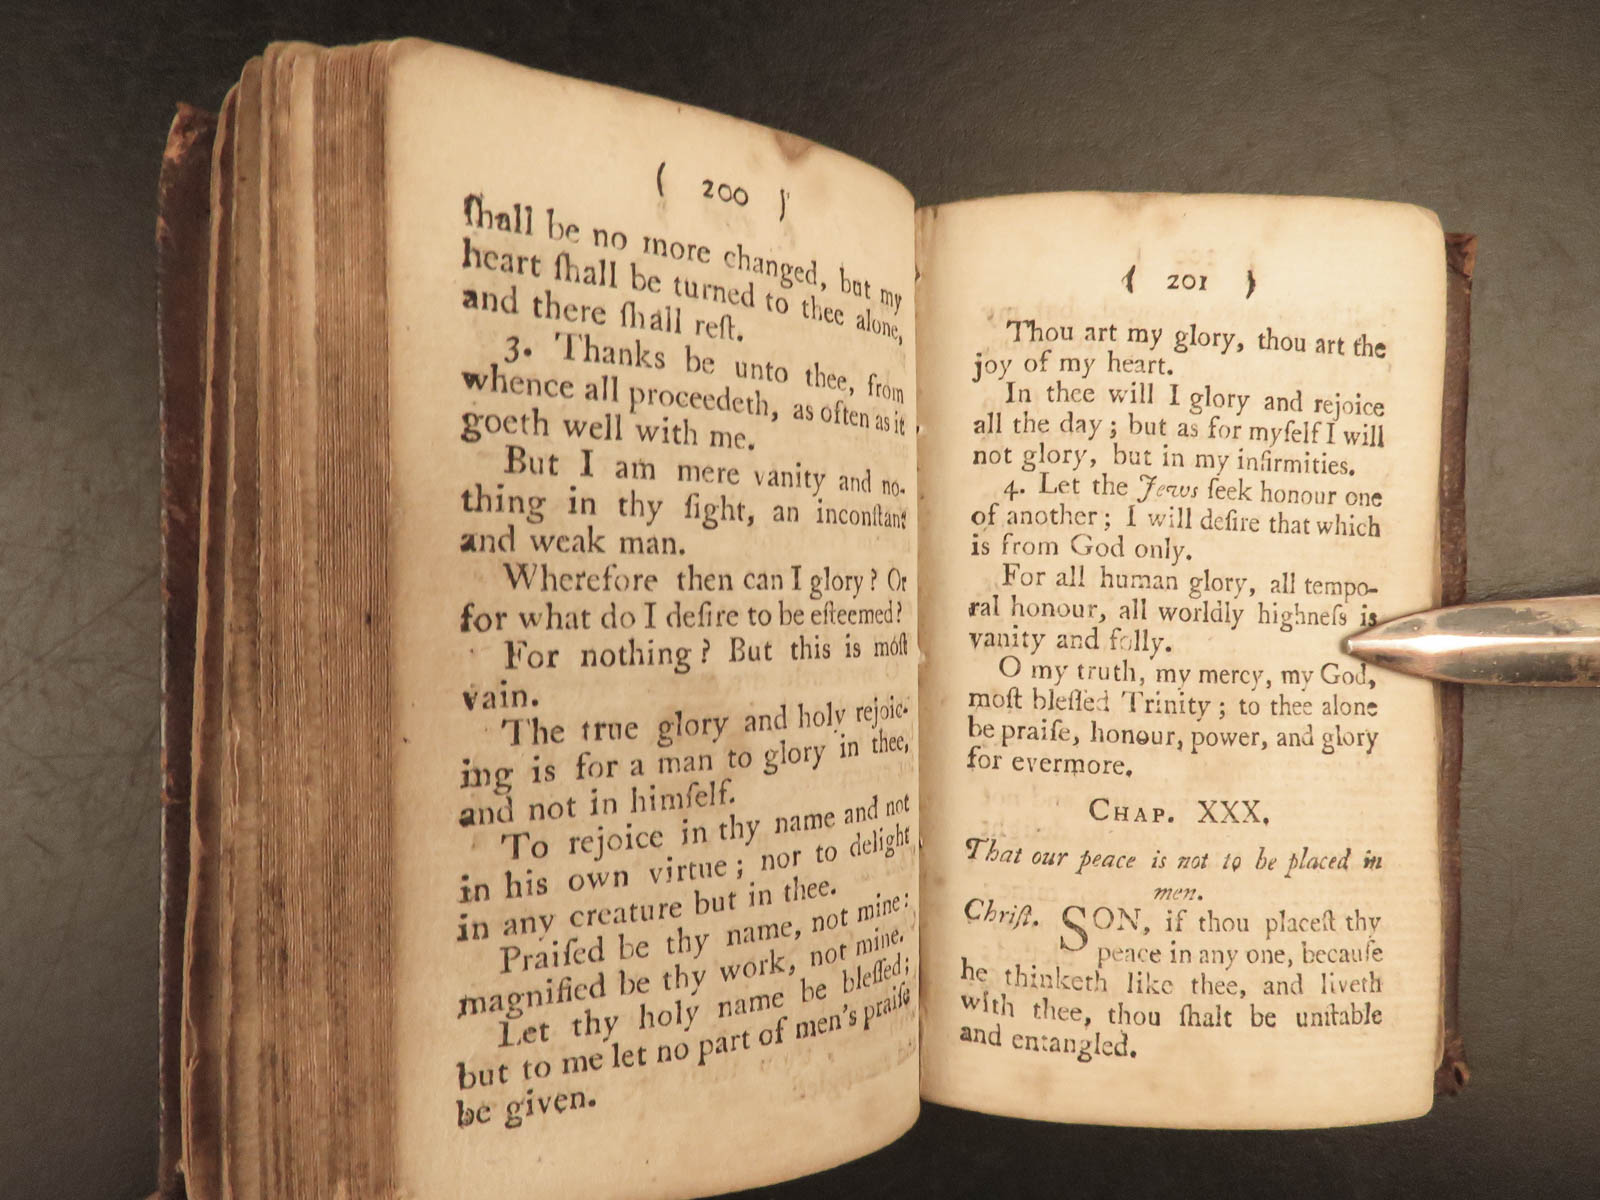 ( 200 )
ſhall be no more changed, but my
heart ſhall be turned to thee alone,
and there ſhall reſt.
3. Thanks be unto thee, from
whence all proceedeth, as often as it
goeth well with me.
But I am mere vanity and no-
thing in thy ſight, an inconſtant
and weak man.
Wherefore then can I glory? Or
for what do I deſire to be eſteemed?
For nothing? But this is moſt
vain.
The true glory and holy rejoic-
ing is for a man to glory in thee,
and not in himſelf.
To rejoice in thy name and not
in his own virtue; nor to delight
in any creature but in thee.
Praiſed be thy name, not mine:
magnified be thy work, not mine.
Let thy holy name be bleſſed;
but to me let no part of men's praiſe
be given.
( 201 )
Thou art my glory, thou art the
joy of my heart.
In thee will I glory and rejoice
all the day; but as for myſelf I will
not glory, but in my infirmities.
4. Let the Jews ſeek honour one
of another; I will deſire that which
is from God only.
For all human glory, all tempo-
ral honour, all worldly highneſs is
vanity and folly.
O my truth, my mercy, my God,
moſt bleſſed Trinity; to thee alone
be praiſe, honour, power, and glory
for evermore.
CHAP. XXX.
That our peace is not to be placed in
men.
Chriſt. SON, if thou placeſt thy
peace in any one, becauſe
he thinketh like thee, and liveth
with thee, thou ſhalt be unſtable
and entangled.